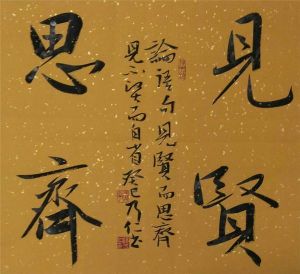 見賢
思齊
論語句見賢而思齊
見不賢而自省癸巳乃仁书